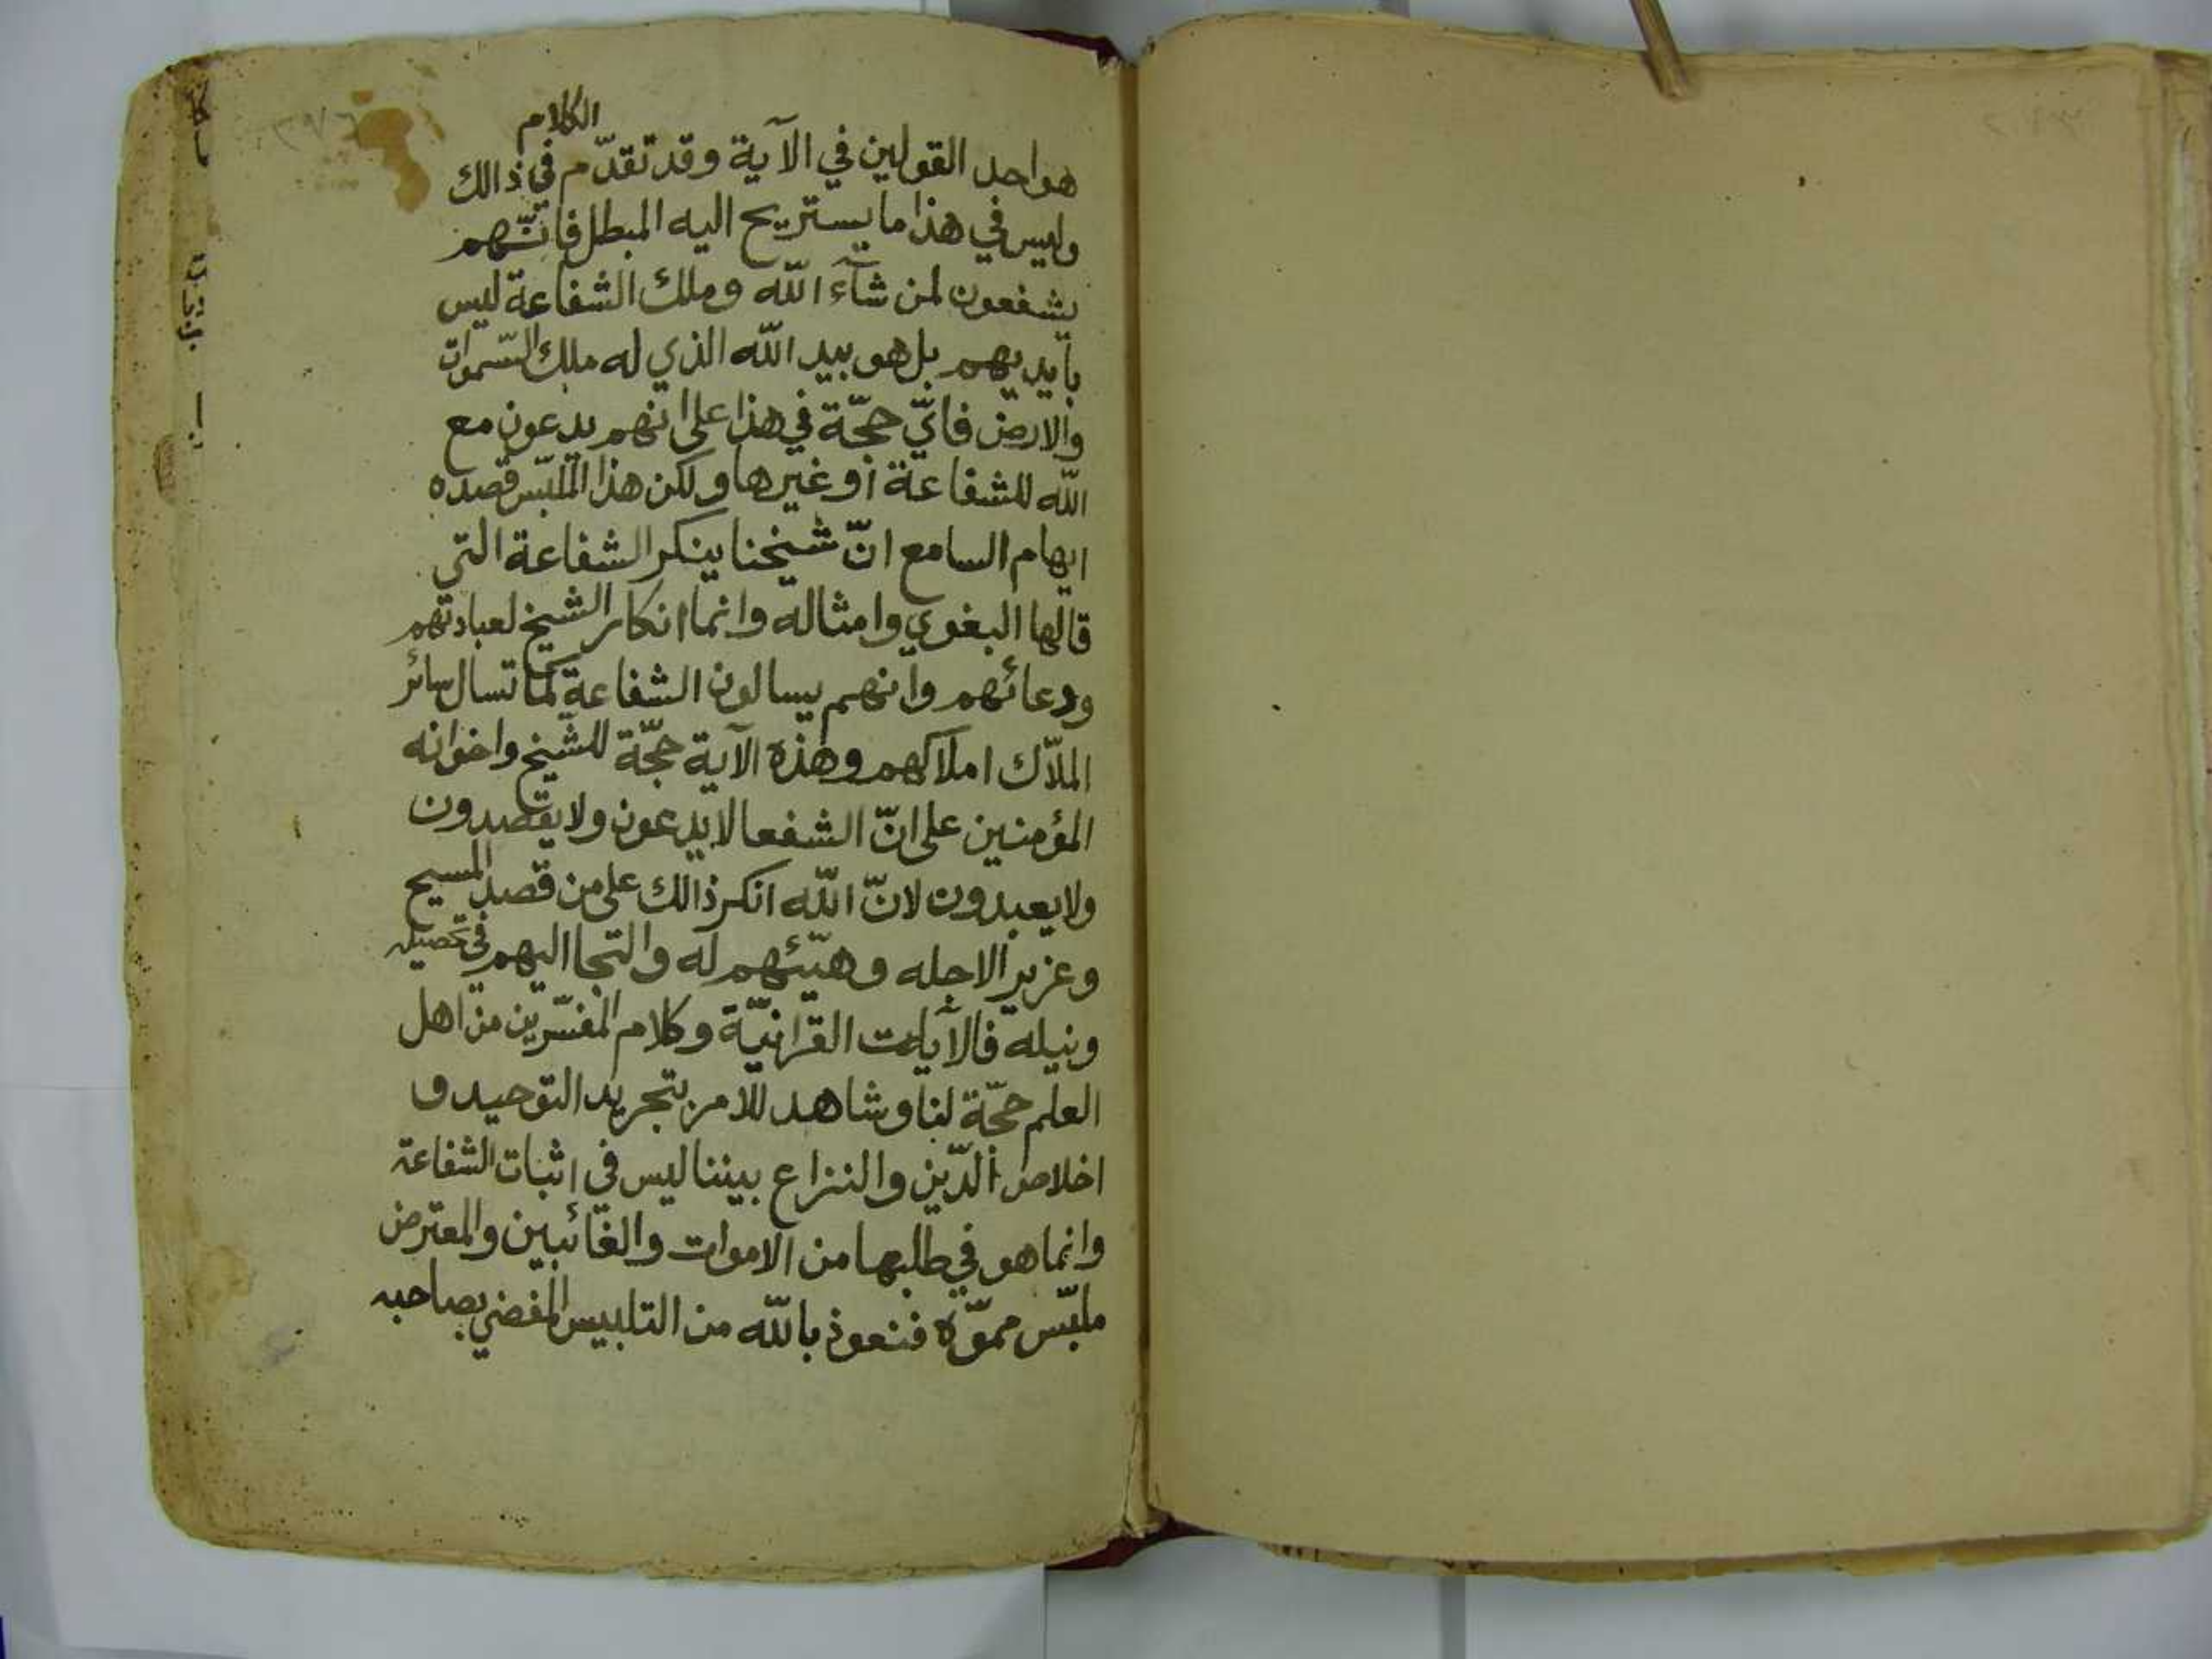 الكلام
هو احد القولين في الآية وقد تقدّم في ذالك
وليس في هذا ما يستريح اليه المبطل فانّهم
يشفعون لمن شآء اللّه وملك الشفاعة ليس
بأيديهم بل هو بيد اللّه الذي له ملك السّموات
والارض فايّ حجّة في هذا على انهم يدعون مع
اللّه للشفاعة أو غيرها ولكن هذا الملبّس قصده
ايهام السامع انّ شيخنا ينكر الشفاعة التي
قالها البغوي وامثاله وانما انكار الشيخ لعبادتهم
ودعائهم وانهم يسالون الشفاعة كما تسال سائر
الملاّك املاكهم وهذه الآية حجّة للشيخ واخوانه
المؤمنين على انّ الشفعا لا يدعون ولا يقصدون
ولا يعبدون لانّ اللّه انكر ذالك على من قصد المسيح
وعزيرا لاجله وهيّئهم له والتجا اليهم في تحصيله
ونيله فالآيات القرانيّة وكلام المفسّرين من اهل
العلم حجّة لنا وشاهد للامر بتجريد التوحيد و
اخلاص الدّين والنزاع بيننا ليس في اثبات الشفاعة
وانما هو في طلبها من الاموات والغائبين والمعترض
ملبّس مموّه فنعوذ باللّه من التلبيس المفضي بصاحبه